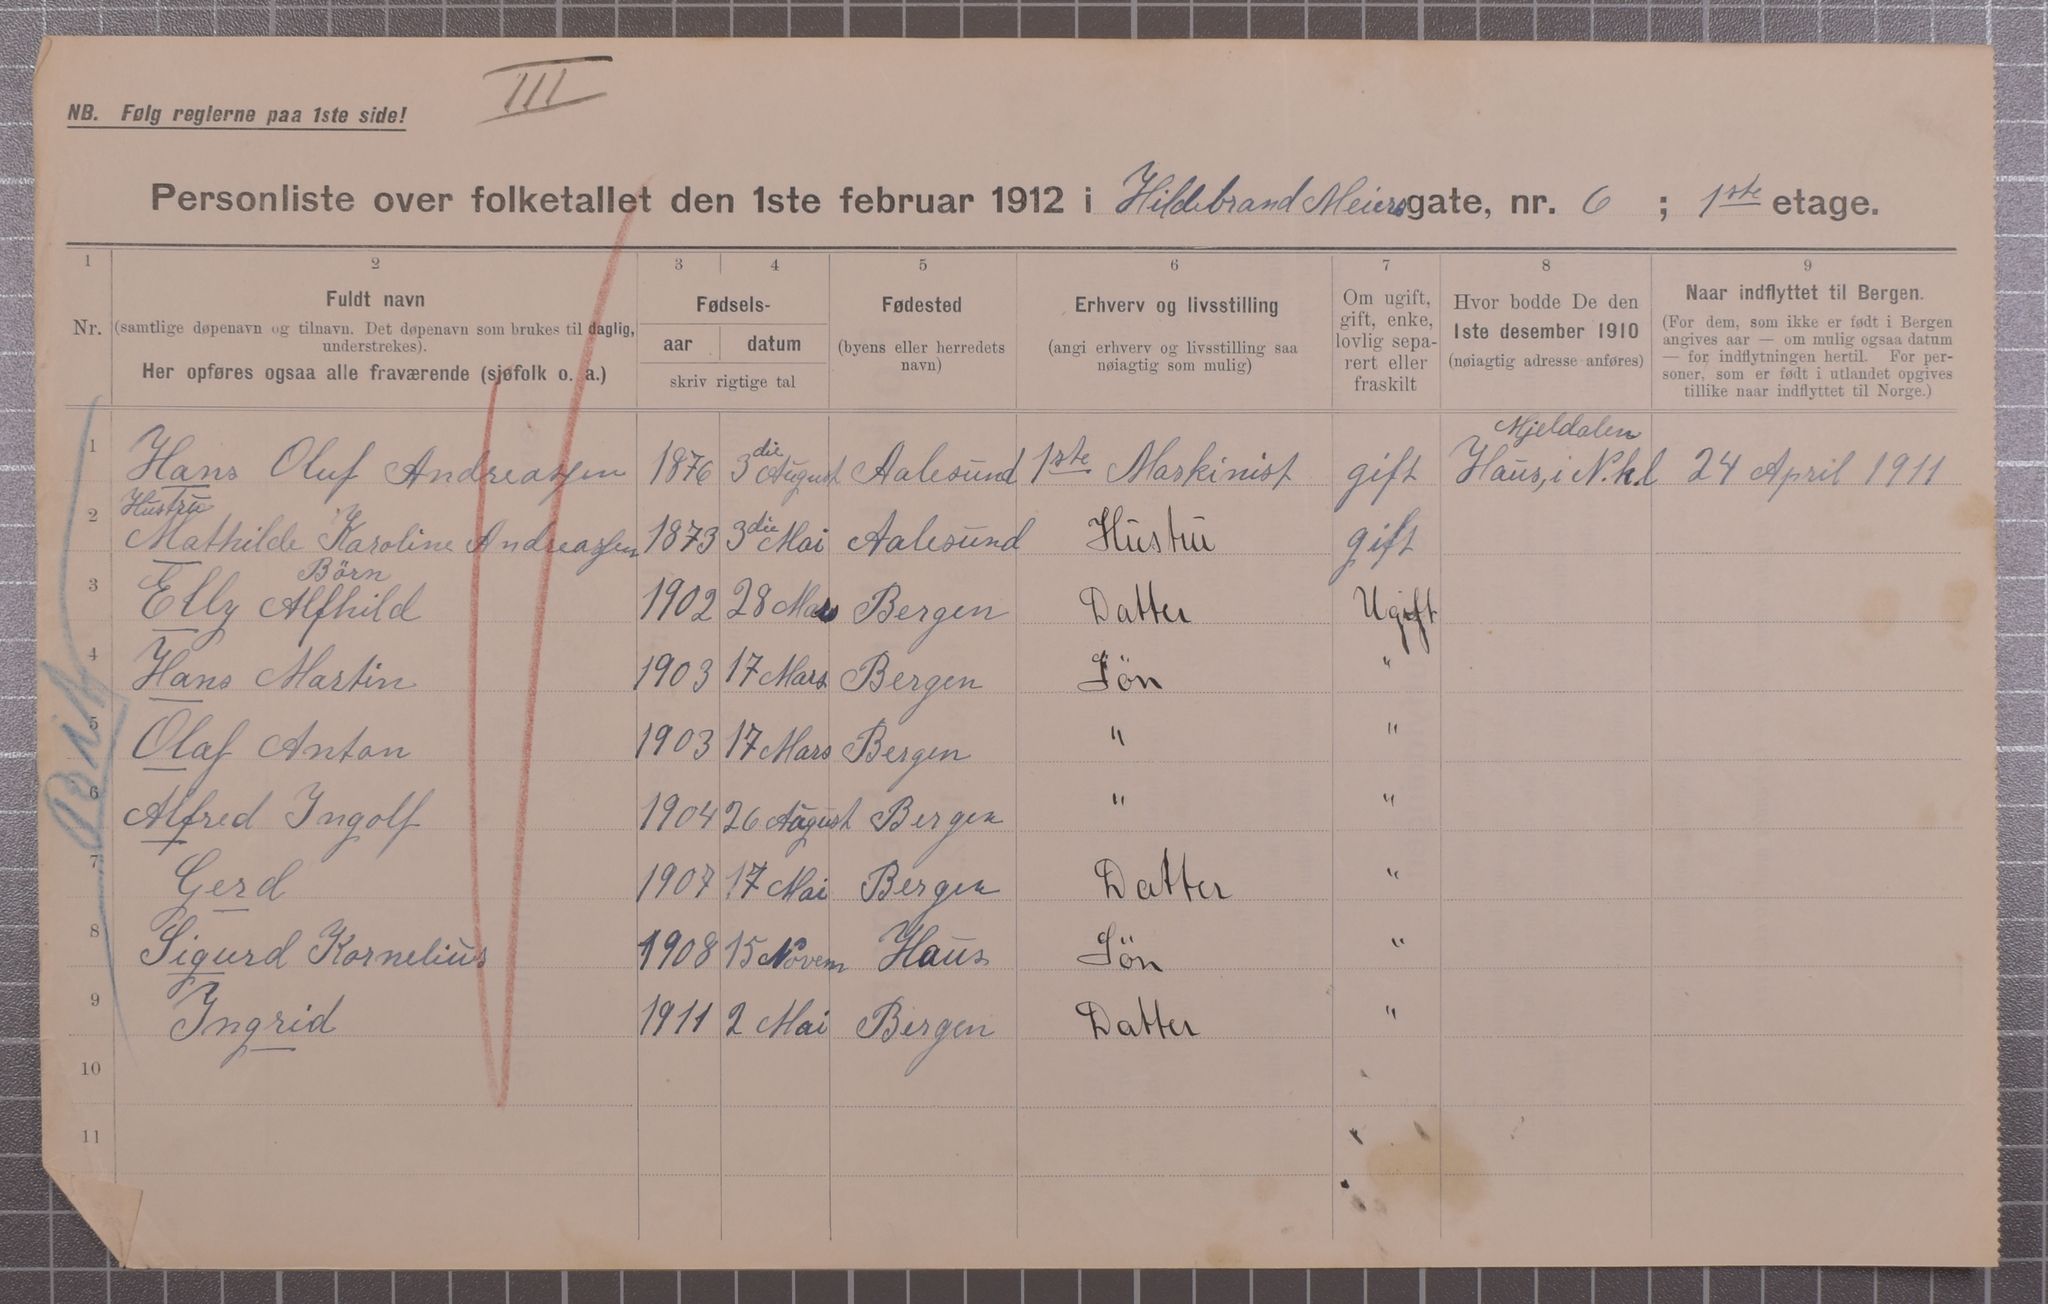 III
NB. Følg reglerne paa 1ste side!
Personliste over folketallet den 1ste februar 1912 i Hildebrand Meiersgate, nr. 6 ; 1ste etage.
1 2 3 4 5 6 7 8 9
Nr.
Fuldt navn
(samtlige døpenavn og tilnavn. Det døpenavn som brukes til daglig,
understrekes).
Her opføres ogsaa alle fraværende (sjøfolk o. a.)
Fødsels-
aar datum
skriv rigtige tal
Fødested
(byens eller herredets
navn)
Erhverv og livsstilling
(angi erhverv og livsstilling saa
nøiagtig som mulig)
Om ugift,
gift, enke,
lovlig sepa-
rert eller
fraskilt
Hvor bodde De den
1ste desember 1910
(nøiagtig adresse anføres)
Naar indflyttet til Bergen.
(For dem, som ikke er født i Bergen
angives aar — om mulig ogsaa datum
— for indflytningen hertil. For per-
soner, som er født i utlandet opgives
tillike naar indflyttet til Norge.)
Mjeldalen
1 Hans Oluf Andreassen 1876 3die August Aalesund 1ste Maskinist gift Haus, i N.h.l 24 April 1911
Hustru
2 Mathilde Karoline Andreassen 1873 3die Mai Aalesund Hustru gift
Börn
3 Elly Alfhild 1902 28 Mars Bergen Datter Ugift
4 Hans Martin 1903 17 Mars Bergen Sön "
5 Olaf Anton 1903 17 Mars Bergen " "
6 Alfred Ingolf 1904 26 August Bergen " "
7 Gerd 1907 17 Mai Bergen Datter "
8 Sigurd Kornelius 1908 15 Novem Haus Sön "
9 Ingrid 1911 2 Mai Bergen Datter "
10
11